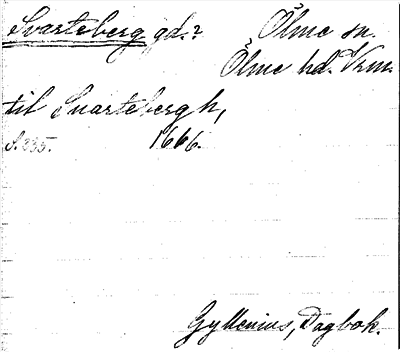 Svarteberg gd.? Ölme sn.
Ölme hd. Vrm.
til Svartebergh,
S. 335. 1666.
Gyllenius, Dagbok.